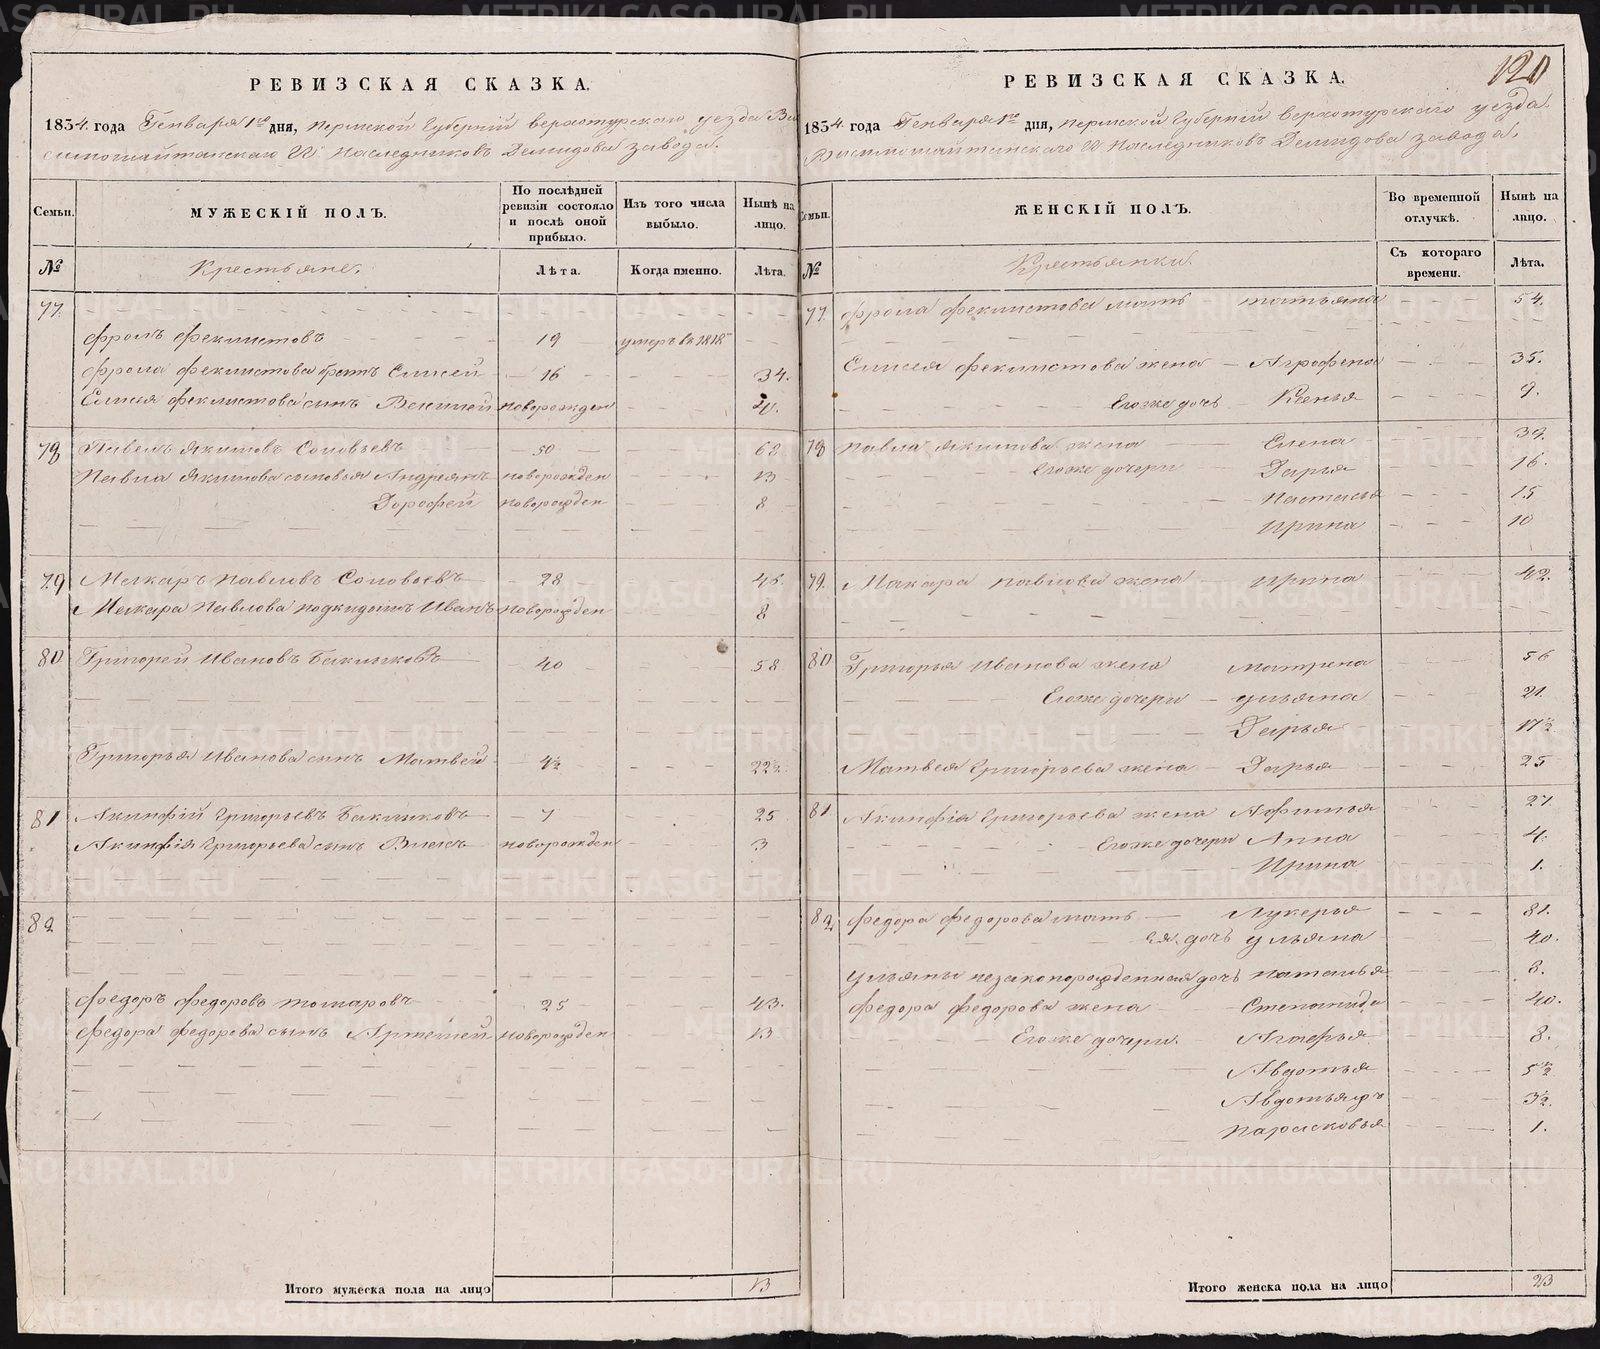 РЕВИЗСКАЯ СКАЗКА.
1834. года Генваря 1го дня, Пермской Губернiи верхотурскаго уезда Ви
симошайтанскаго Гг наследниковъ Демидова завода.
Семьи.
МУЖЕСКІЙ ПОЛЪ.
По послѣдней ревизіи состояло и послѣ оной прибыло.
Изъ того числа выбыло.
Нынѣ на лицо.
№
Крестьяне.
Лѣта.
Когда именно.
Лѣта.
77.
Фролъ Феклистовъ 19 умеръ въ 1818
Фрола Феклистова братъ Елисей 16 34.
Елисея Феклистова сынъ новорожден
78 Павелъ Якимовъ Соловьевъ 50 68
Павла Якимова сыновья Андреянъ новорожден 13
Дорофей новорожден 8
79 Макаръ Павловъ Соловьевъ 28 46.
Макара Павлова подкидышъ Иванъ новорожден 8
80 Григорей Ивановъ Баклыковъ 40 58
Григорья Иванова сынъ Матвей 4½ 22½
81 Акинфiй Григорьевъ Баклыковъ 7 25
Акинфiя Григорьева сынъ новорожден 3
82
Федоръ Федоровъ 25 43.
Федора Федорова сынъ Артемей новорожден 13
Итого мужеска пола на лицо 13
120
РЕВИЗСКАЯ СКАЗКА.
1834 года Генваря 1го дня, Пермской Губернiи верхотурскаго уезда.
Висимошайтанскаго Гг Наследниковъ Демидова завода.
Семьи.
ЖЕНСКІЙ ПОЛЪ.
Во временной отлучкѣ.
Нынѣ на лицо.
№
Крестьянки.
Съ котораго времени.
Лѣта.
77. Фрола Феклистова мать Татьяна 54.
Елисея Феклистова жена Агрофена 35.
Егоже дочь Ксенья 9.
78 Павла Якимова жена Елена 39.
Егоже дочери Дарья 16.
Настасья 15
Ирина 10
79. Макара Павлова жена Ирина 42.
80 Григорья Иванова жена Матрена 56
Егоже дочери Ульяна 21.
Дарья 17½
Матвея Григорьева жена Дарья 25
81 Акинфiя Григорьева жена Афимья 27
Егоже дочери Анна 4.
Ирина 1.
82 Федора Федорова мать Лукерья 81.
ея дочь Ульяна 40.
Ульяны незаконорожденная дочь Наталья 8.
Федора Федорова жена Степанида 40.
Егоже дочери. 8.
Авдотья 5½
Авдотья 3½.
Парасковья 1.
Итого женска пола на лицо 23
METRIKI.GASO-URAL.RU